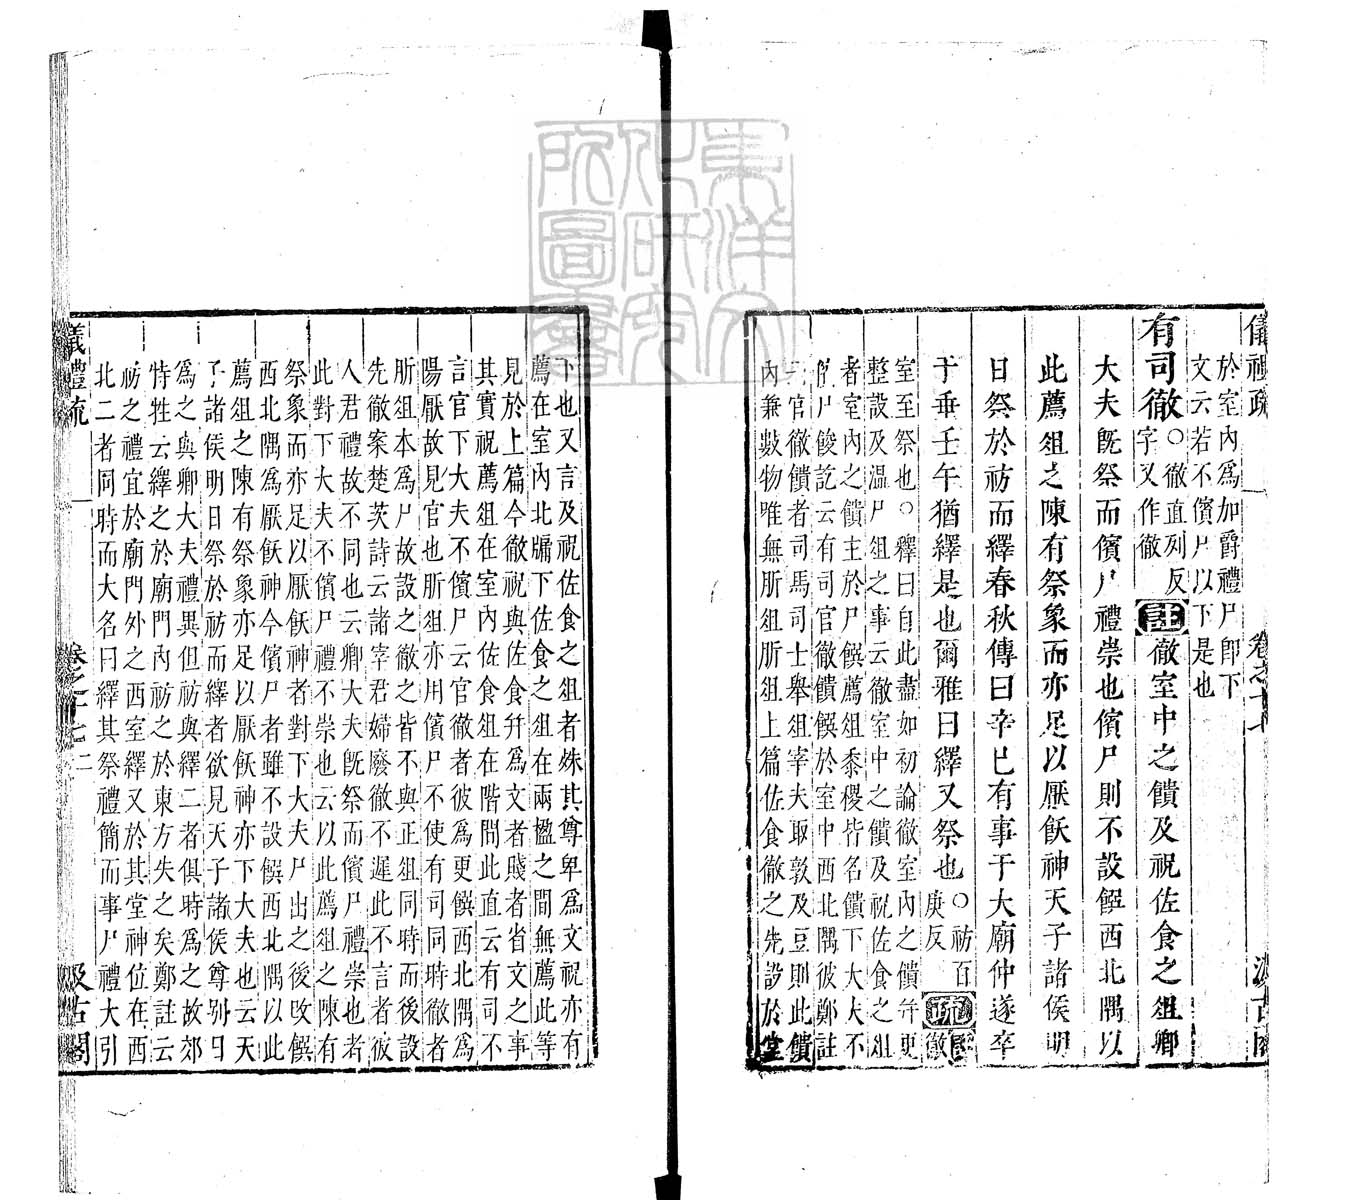 儀禮疏 卷之十七 汲古閣
於室內為加爵禮尸即下
文云若不儐尸以下是也
有司徹
○徹直列反
字又作徹
註徹室中之饋及祝佐食之俎卿
大夫旣祭而儐尸禮崇也儐尸則不設饌西北隅以
此薦俎之陳有祭象而亦足以厭飫神天子諸侯明
日祭於祊而繹春秋傳曰辛巳有事于大廟仲遂卒
于垂壬午猶繹是也爾雅曰繹又祭也
○祊百
庚反
疏
徹
室至祭也○釋曰自此盡如初論徹室內之饋并更
整設及溫尸俎之事云徹室中之饋及祝佐食之俎
者室內之饋主於尸饌薦俎黍稷皆名饋下大夫不
儐尸餕訖云有司官徹饋饌於室中西北隅彼鄭註
云官徹饋者司馬司士舉俎宰夫取敦及豆則此饋
內兼數物唯無肵俎肵俎上篇佐食徹之先設於堂
下也又言及祝佐食之俎者殊其尊卑為文祝亦有
薦在室內北牖下佐食之俎在兩楹之間無薦此等
見於上篇今徹祝與佐食并為文者賤者省文之事
其實祝薦俎在室內佐食俎在階間此直云有司不
言官下大夫不儐尸云官徹者彼為更饌西北隅為
陽厭故見官也肵俎亦用儐尸不使有司同時徹者
肵俎本為尸故設之徹之皆不與正俎同時而後設
先徹案楚茨詩云諸宰君婦廢徹不遲此不言者彼
人君禮故不同也云卿大夫旣祭而儐尸禮崇也者
此對下大夫不儐尸禮不崇也云以此薦俎之陳有
祭象而亦足以厭飫神者對下大夫尸出之後改饌
西北隅為厭飫神今儐尸者雖不設饌西北隅以此
薦俎之陳有祭象亦足以厭飫神亦下大夫也云天
子諸侯明日祭於祊而繹者欲見天子諸侯尊別日
為之與卿大夫禮異但祊與繹二者俱時為之故郊
特牲云繹之於廟門內祊之於東方失之矣鄭註云
祊之禮宜於廟門外之西室繹又於其堂神位在西
北二者同時而大名曰繹其祭禮簡而事尸禮大引
儀禮疏 卷之十七 二 汲古閣